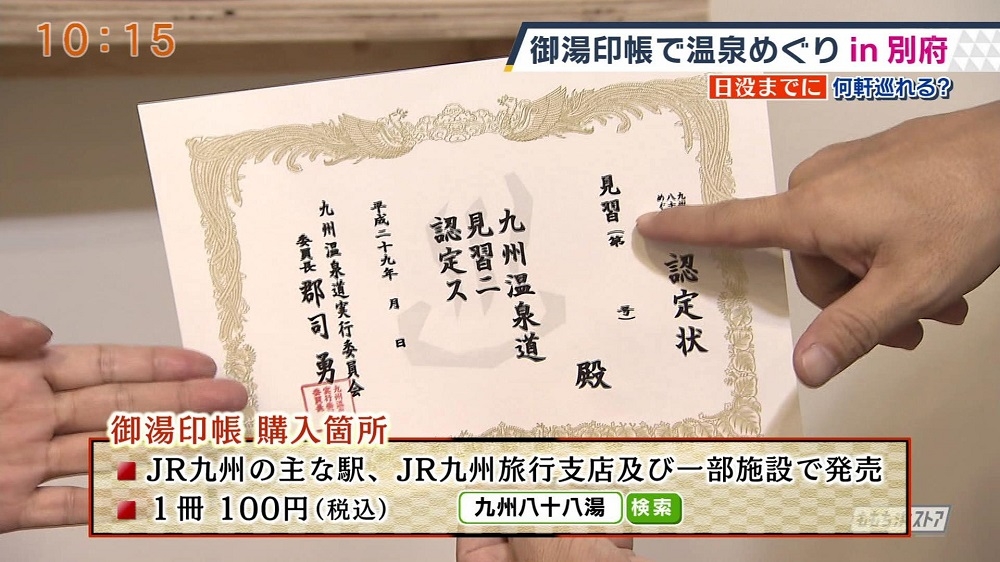 10:15
御湯印帳で温泉めぐり in 別府
日没までに 何軒巡れる?
認定状
見習(第 号)
殿
九州温泉道
見習ニ
認定ス
平成二十九年 月 日
九州温泉道実行委員会
委員長 郡司勇
御湯印帳 購入箇所
■ JR九州の主な駅、JR九州旅行支店及び一部施設で発売
■ 1冊 100円(税込) 九州八十八湯 検索
ももち浜ストア